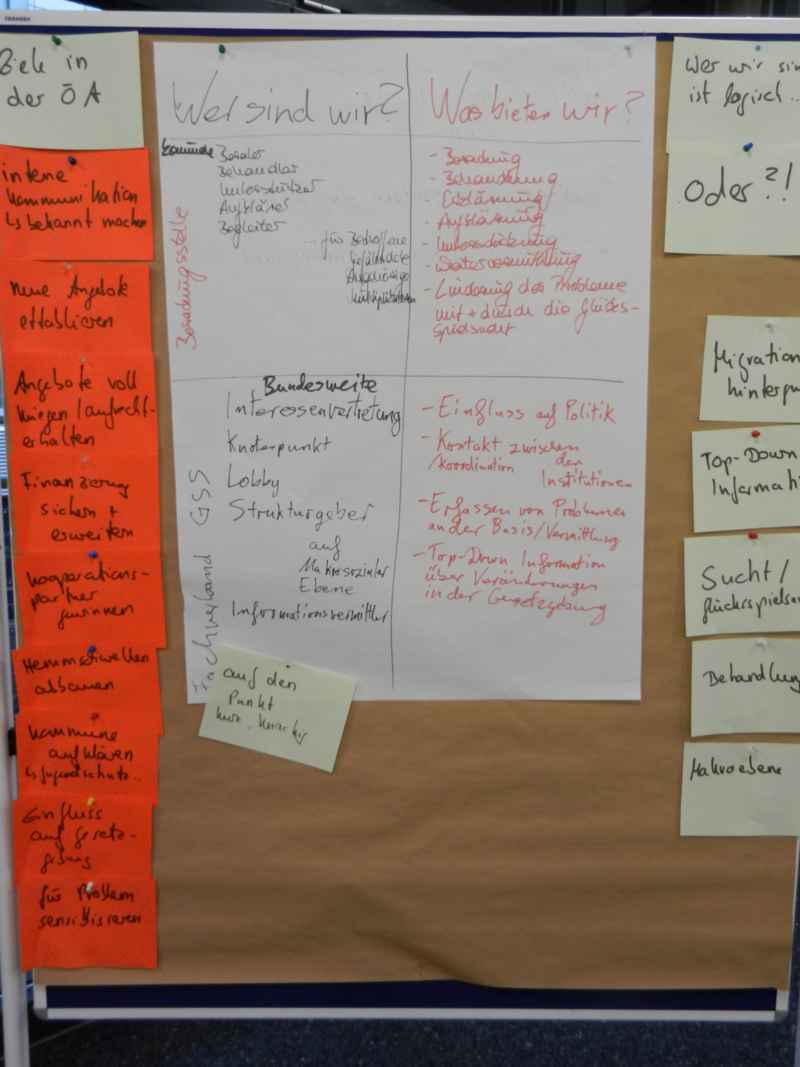 Ziele in
der ÖA
interne
Kommunikation
↳ bekannt machen
neue Angebote
ettablieren
Angebote voll
kriegen / aufrecht-
erhalten
Finanzierung
sichern +
erweitern
Kooperations-
partner
gewinnen
Hemmschwellen
abbauen
Kommune
aufklären
↳ Jugendschutz..
Einfluss
auf Gesetz-
gebung
für Problem
sensibilisieren
Wer sind wir?
Beratungsstelle
Berater
Behandler
Unterstützer
Aufklärer
Begleiter
... für Betroffene
Gefährdete
Angehörige
Was bieten wir?
- Beratung
- Behandlung
- Aufklärung
- Unterstützung
- Weitervermittlung
- Linderung der Probleme
mit + durch die Glücks-
spielsucht
Fachverband GSS
Bundesweite
Interessenvertretung
Knotenpunkt
Lobby
Strukturgeber
auf
Makrosozialer
Ebene
Informationsvermittler
- Einfluss auf Politik
- Kontakt zwischen
/Koordination den
Institutionen
- Erfassen von Problemen
an der Basis/Vermittlung
- Top-Down Information
über Veränderungen
in der Gesetzgebung
auf den
Punkt
kurz, knackig
Wer wir sin
ist logisch...
Oder?!
Migration
hinterg
Top-Down
Informati
Sucht/
glücksspiel
Behandlung
Makroebene